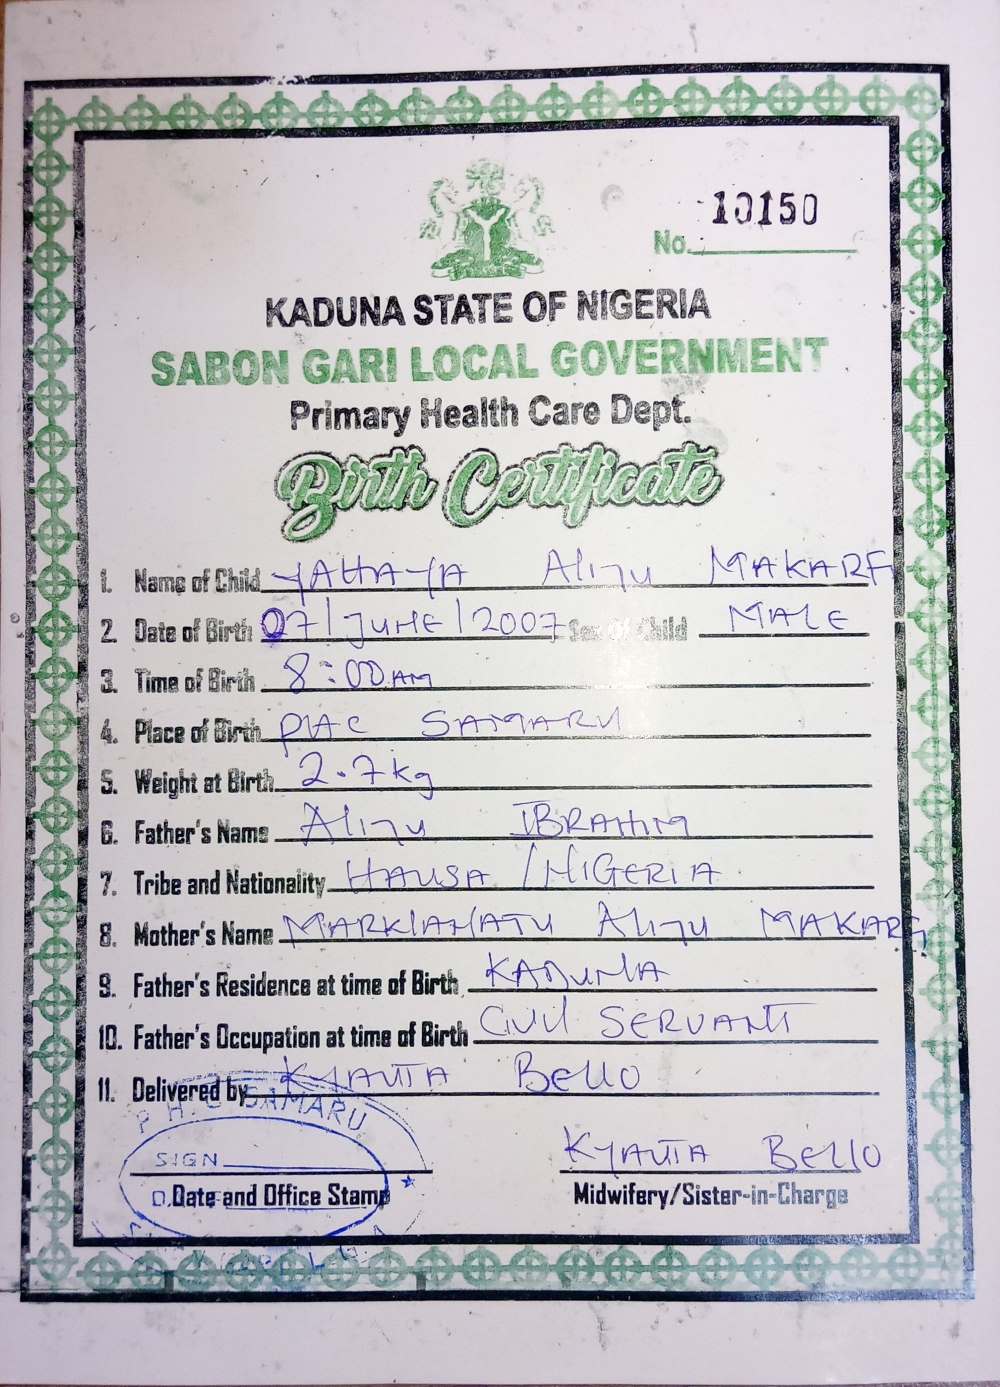 10150
No.
KADUNA STATE OF NIGERIA
SABON GARI LOCAL GOVERNMENT
Primary Health Care Dept.
Birth Certificate
1. Name of Child YAHAYA Aliyu MAKARF
2. Date of Birth 07/JUNE/2007 Sex Of Child MALE
3. Time of Birth 8:00AM
4. Place of Birth PHC SAMARU
5. Weight at Birth 2.7kg
6. Father's Name Aliyu IBRAHIM
7. Tribe and Nationality HAUSA /NIGERIA
8. Mother's Name Aliyu MAKARF
9. Father's Residence at time of Birth KADUNA
10. Father's Occupation at time of Birth Civil SERVANT
11. Delivered by KYAUTA BELLO
P.H.C SAMARU
SIGN
Date and Office Stamp
KYAUTA BELLO
Midwifery/Sister-in-Charge